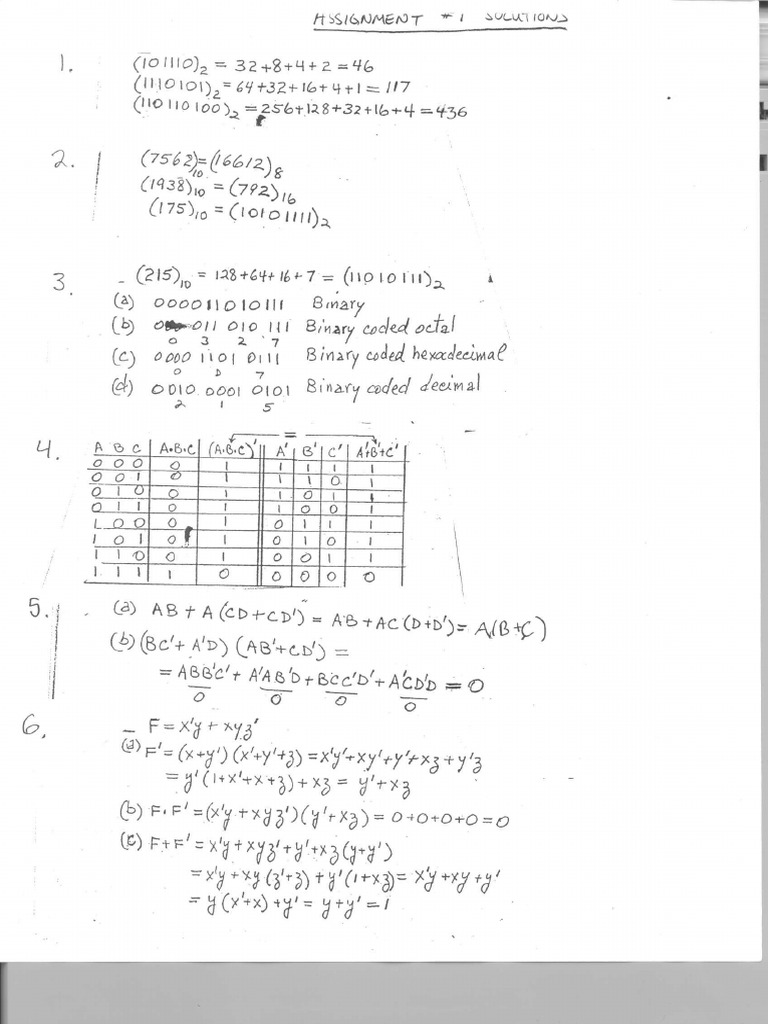 ASSIGNMENT #1 SOLUTIONS
1. (101110)₂ = 32+8+4+2=46
(1110101)₂=64+32+16+4+1=117
(110110100)₂=256+128+32+16+4=436
2. (7562)₁₀=(16612)₈
(1938)₁₀=(792)₁₆
(175)₁₀=(10101111)₂
3. (215)₁₀ = 128+64+16+7 = (11010111)₂
(a) 000011010111 Binary
(b) 0 011 010 111 Binary coded octal
0 3 2 7
(c) 0000 1101 0111 Binary coded hexadecimal
0 D 7
(d) 0010 0001 0101 Binary coded decimal
2 1 5
=
4. A B C A·B·C (A·B·C)' A' B' C' A'+B'+C'
0 0 0 0 1 1 1 1 1
0 0 1 0 1 1 1 0 1
0 1 0 0 1 1 0 1 1
0 1 1 0 1 1 0 0 1
1 0 0 0 1 0 1 1 1
1 0 1 0 1 0 1 0 1
1 1 0 0 1 0 0 1 1
1 1 1 1 0 0 0 0 0
5. (a) AB+A(CD+CD') = AB+AC(D+D')=A(B+C)
(b) (BC'+A'D)(AB'+CD') =
=ABB'C'+A'AB'D+BCC'D'+A'CD'D = 0
0 0 0 0
6. F=x'y+xyz'
(a) F'=(x+y')(x'+y'+z)=x'y'+xy'+y'+xz+y'z
=y'(1+x'+x+z)+xz = y'+xz
(b) F·F'=(x'y+xyz')(y'+xz)=0+0+0+0=0
(c) F+F'=x'y+xyz'+y'+xz(y+y')
=x'y+xy(z'+z)+y'(1+xz)=x'y+xy+y'
=y(x'+x)+y'=y+y'=1